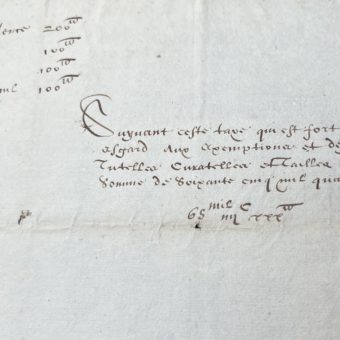 lence 200 ₶
100 ₶
100 ₶
mil 100 ₶
Suyvant ceste taxe qui est fort
esgard aux exemptions et de
Tutelles Curatelles et Tailles
somme de soixante cinq mil qua
65 mil iiii C xxx ₶